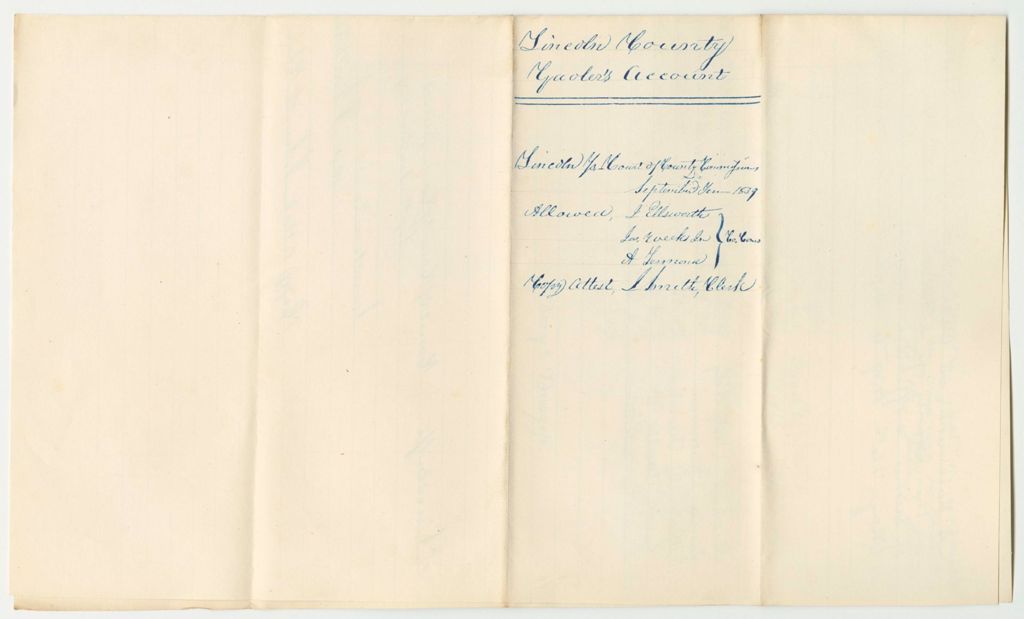 Lincoln County
Gaoler's Account
Lincoln Ss. Court of County Commissioners
September Term 1839
Allowed, J Ellsworth
Jas. Weeks Jr } Co. Coms
A Lermond
Copy Attest, J Smith, Clerk